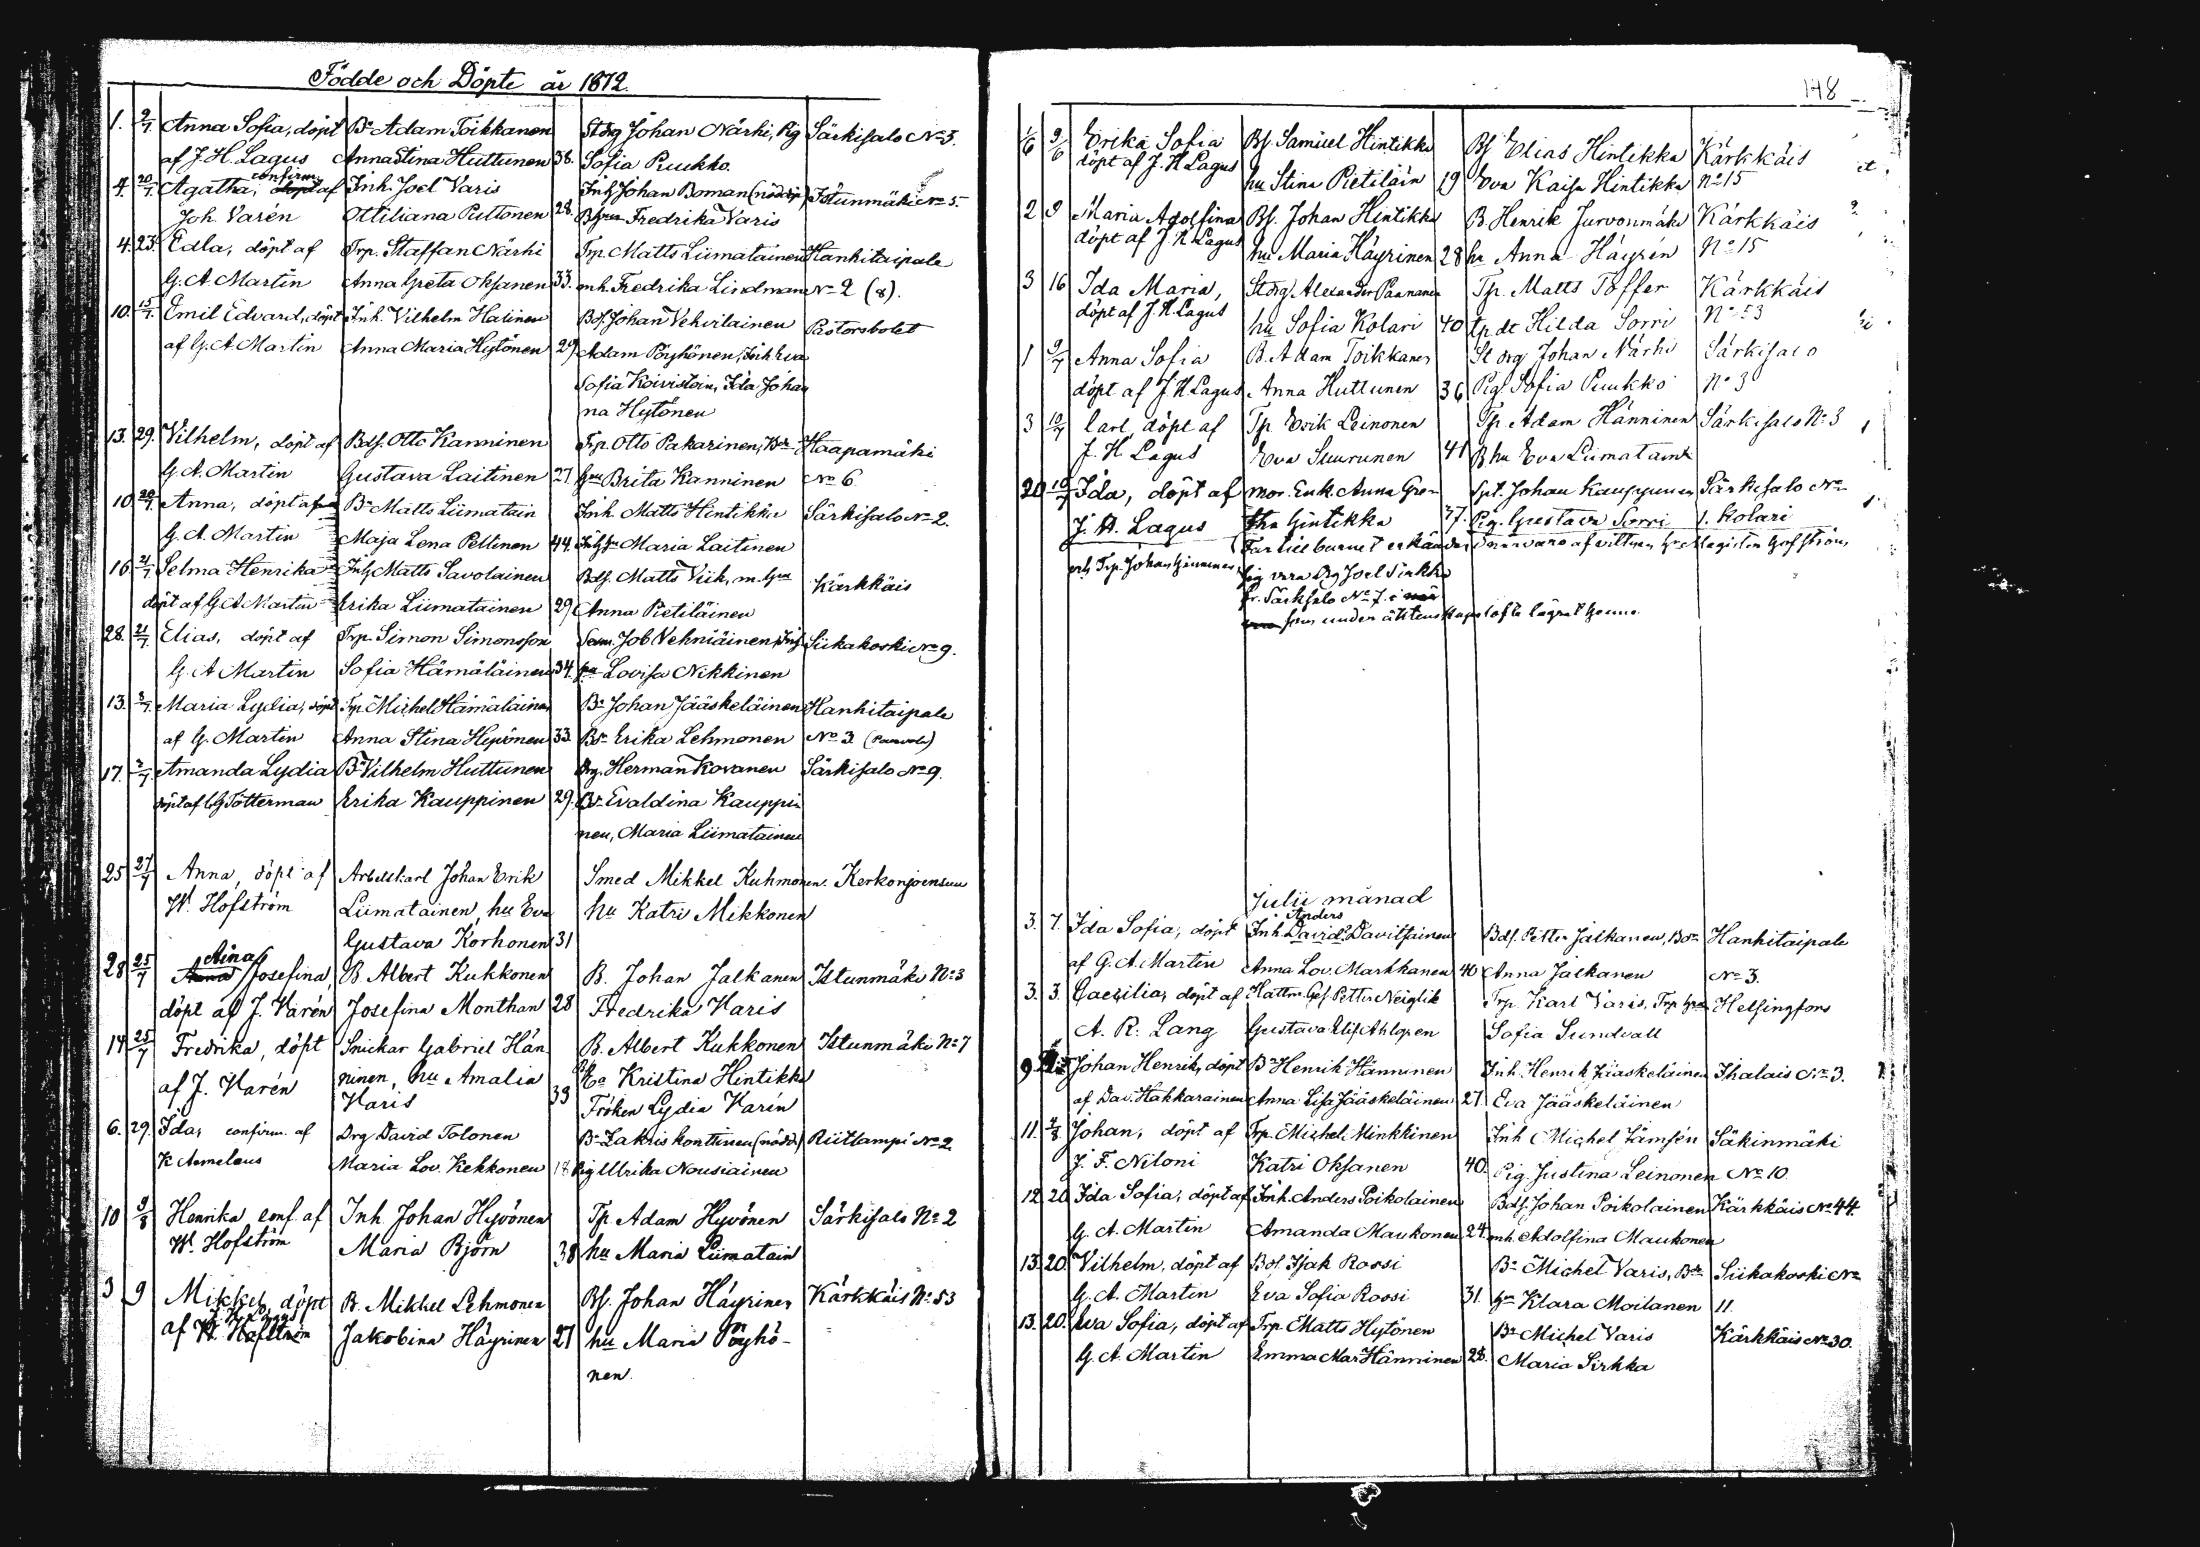 Födde och Döpte år 1872.
1. 9/7. Anna Sofia, döpt Bd. Adam Toikkanen Stdrg Johan Närhi, Pig Särkisalo No 3.
af J. H. Lagus Anna Stina Huttunen 36. Sofia Puukko.
confirm.
4. 20/7. Agatha, döpt af Inh. Joel Varis Inh Johan Boman (nöddöp) Istunmäki No 5.
Joh. Varén Ottiliana Puttonen 28. Fredrika Varis
4. 23. Edla, döpt af Trp. Staffan Närhi Trp. Matts Liimatainen Hanhitaipale
G. A. Martin Anna Greta Oksanen 33. mh. Fredrika Lindman No 2 (8).
10. 15/7. Emil Edvard, döpt Inh. Vilhelm Halinen Bds. Johan Vehvilainen Pastorsbolet
af G. A. Martin Anna Maria Hytönen 29 Adam Pöyhönen, Inh Eva
Sofia Koivistoin, Ida Johan
na Hytönen
13. 29. Vilhelm, döpt af Bds. Otto Kanninen Trp. Otto Pakarinen, Bds Haapamäki
G. A. Martin Gustava Laitinen 27 hu Brita Kanninen No 6
10 29/7. Anna, döpt af Bd. Matts Liimatain Inh. Matts Hintikka Särkisalo No 2.
G. A. Martin Maja Lena Peltinen 44. Maria Laitinen
16. 21/7 Selma Henrika Inh Matts Savolainen Bds. Matts Viik, m. hu Kärkkäis
döpt af G A Martin Erika Liimatainen 29 Anna Pietiläinen
28. 21/7. Elias, döpt af Trp. Simon Simonsson Job Vehniäinen, Inh Siikakoski No 9.
G. A Martin Sofia Hämäläinen 34. hu Lovisa Nikkinen
13. 8/7. Maria Lydia, döpt Trp. Michel Hämäläinen Bd. Johan Jääskeläinen Hanhitaipale
af G. Martin Anna Stina Hyvönen 33. Erika Lehmonen No 3.
17. Amanda Lydia Bd. Vilhelm Huttunen Drg. Herman Kovanen Särkisalo No 9.
döpt af Tötterman Erika Kauppinen 29. Evaldina Kauppi-
nen, Maria Liimatainen
25 27/7 Anna, döpt af Arbetskarl Johan Erik Smed Mikkel Kuhmonen. Kerkonjoensuu
W. Hofström Liimatainen, hu Eva hu Katri Mikkonen
Gustava Korhonen 31
Aina
28 25/7 Anna Josefina, B. Albert Kukkonen B. Johan Jalkanen Istunmäki No 3
döpt af J. Varén Josefina Monthan 28 Fredrika Varis
14 25/7 Fredrika, döpt Snickar Gabriel Hän B. Albert Kukkonen Istunmäki No 7
af J. Varén ninen, hu Amalia Kristina Hintikka
Varis 39 Fröken Lydia Varén
6. 29. Ida, confirm. af Drg David Tolonen Bd. Zakris Kontinen (nöddöp) Riitlampi No 2
K Aemelæus Maria Lov. Kekkonen 18 Pig Ulrika Nousiainen
10 9/8 Henrika conf. af Inh. Johan Hyvönen Tp. Adam Hyvönen Särkisalo No 2
W. Hofström Maria Björn 38 hu Maria Liimatain
3 9 Mikkel, döpt B. Mikkel Lehmonen Bs. Johan Häyrinen Kärkkäis No 53
J. H. Lagus
af W. Hofström Jakobina Häyrinen 27 hu Maria Pöyhö-
nen.
148
1/6 9/6 Erika Sofia Bs. Samuel Hintikka Bs Elias Hintikka Kärkkäis
döpt af J. H Lagus hu Stina Pietiläin 19 Eva Kaisa Hintikka No 15
2 9 Maria Adolfina Bs. Johan Hintikka B. Henrik Jurvonmäki Kärkkäis
döpt af J. H Lagus hu Maria Häyrinen 28 hu Anna Häyrén No 15
3 16 Ida Maria, Stdrg Alexander Paananen Tp. Matts Toffer Kärkkäis
döpt af J. H. Lagus hu Sofia Kolari 40 tp dt Hilda Sorri No 53
1 9/7 Anna Sofia B. Adam Toikkanen St drg Johan Närhi Särkisalo
döpt af J H Lagus Anna Huttunen 36 Pig. Sofia Puukko No 3
3 10/7 Carl, döpt af Tp Erik Leinonen Tp Adam Hänninen Särkisalo No 3
J. H Lagus Eva Suurunen 41 B hu Eva Liimatain
20 10/7 Ida, döpt af mor. Enk. Anna Gre- Spt. Johan Kauppinen Särkisalo No
J. H. Lagus tha Hintikka 37. Pig. Gustava Sorri 1. Kolari
Far till barnet erkände i närvaro af vittnen, Hr Magister Hofström
och Trp. Johan Hinninen sig vara Drg Joel Sirkka
fr. Särksalo No 7.
som under äktenskapslöfte lägrat henne.
Julii månad
Anders
3. 7. Ida Sofia, döpt Inh. David Davitsainen Bds. Petter Jalkanen, Bds Hanhitaipale
af G. A. Martin Anna Lov. Markkanen 40 Anna Jalkanen No 3.
3. 3. Caecilia, döpt af Hattm. Ges. Petter Neiglik Trp. Karl Varis, Trp hu Helsingfors
A. R. Lang Gustava Ahlgren Sofia Sundvall
9 Johan Henrik, döpt Bd. Henrik Hänninen Inh. Henrik Jääskeläinen Ihalais No 3.
af Dav. Hakkarainen Anna Lisa Jääskeläinen 27. Eva Jääskeläinen
11. 4/8 Johan, döpt af Trp. Michel Minkkinen Inh Michel Jämsén Säkinmäki
J. F. Niloni Katri Oksanen 40. Pig. Justina Leinonen No 10.
12. 20. Ida Sofia, döpt af Inh. Anders Poikolainen Bds. Johan Poikolainen Kärkkäis No 44.
G. A. Martin Amanda Maukonen 24. mh. Adolfina Maukonen
13. 20. Vilhelm, döpt af Bds. Isak Rossi Bd. Michel Varis, Bds Siikakoski No
G. A. Martin Eva Sofia Rossi 31. hu Klara Moilanen 11.
13. 20. Eva Sofia, döpt af Trp. Matts Hytönen Bd. Michel Varis Kärkkäis No 30.
G. A. Martin Emma Mar. Hänninen 28. Maria Sirkka